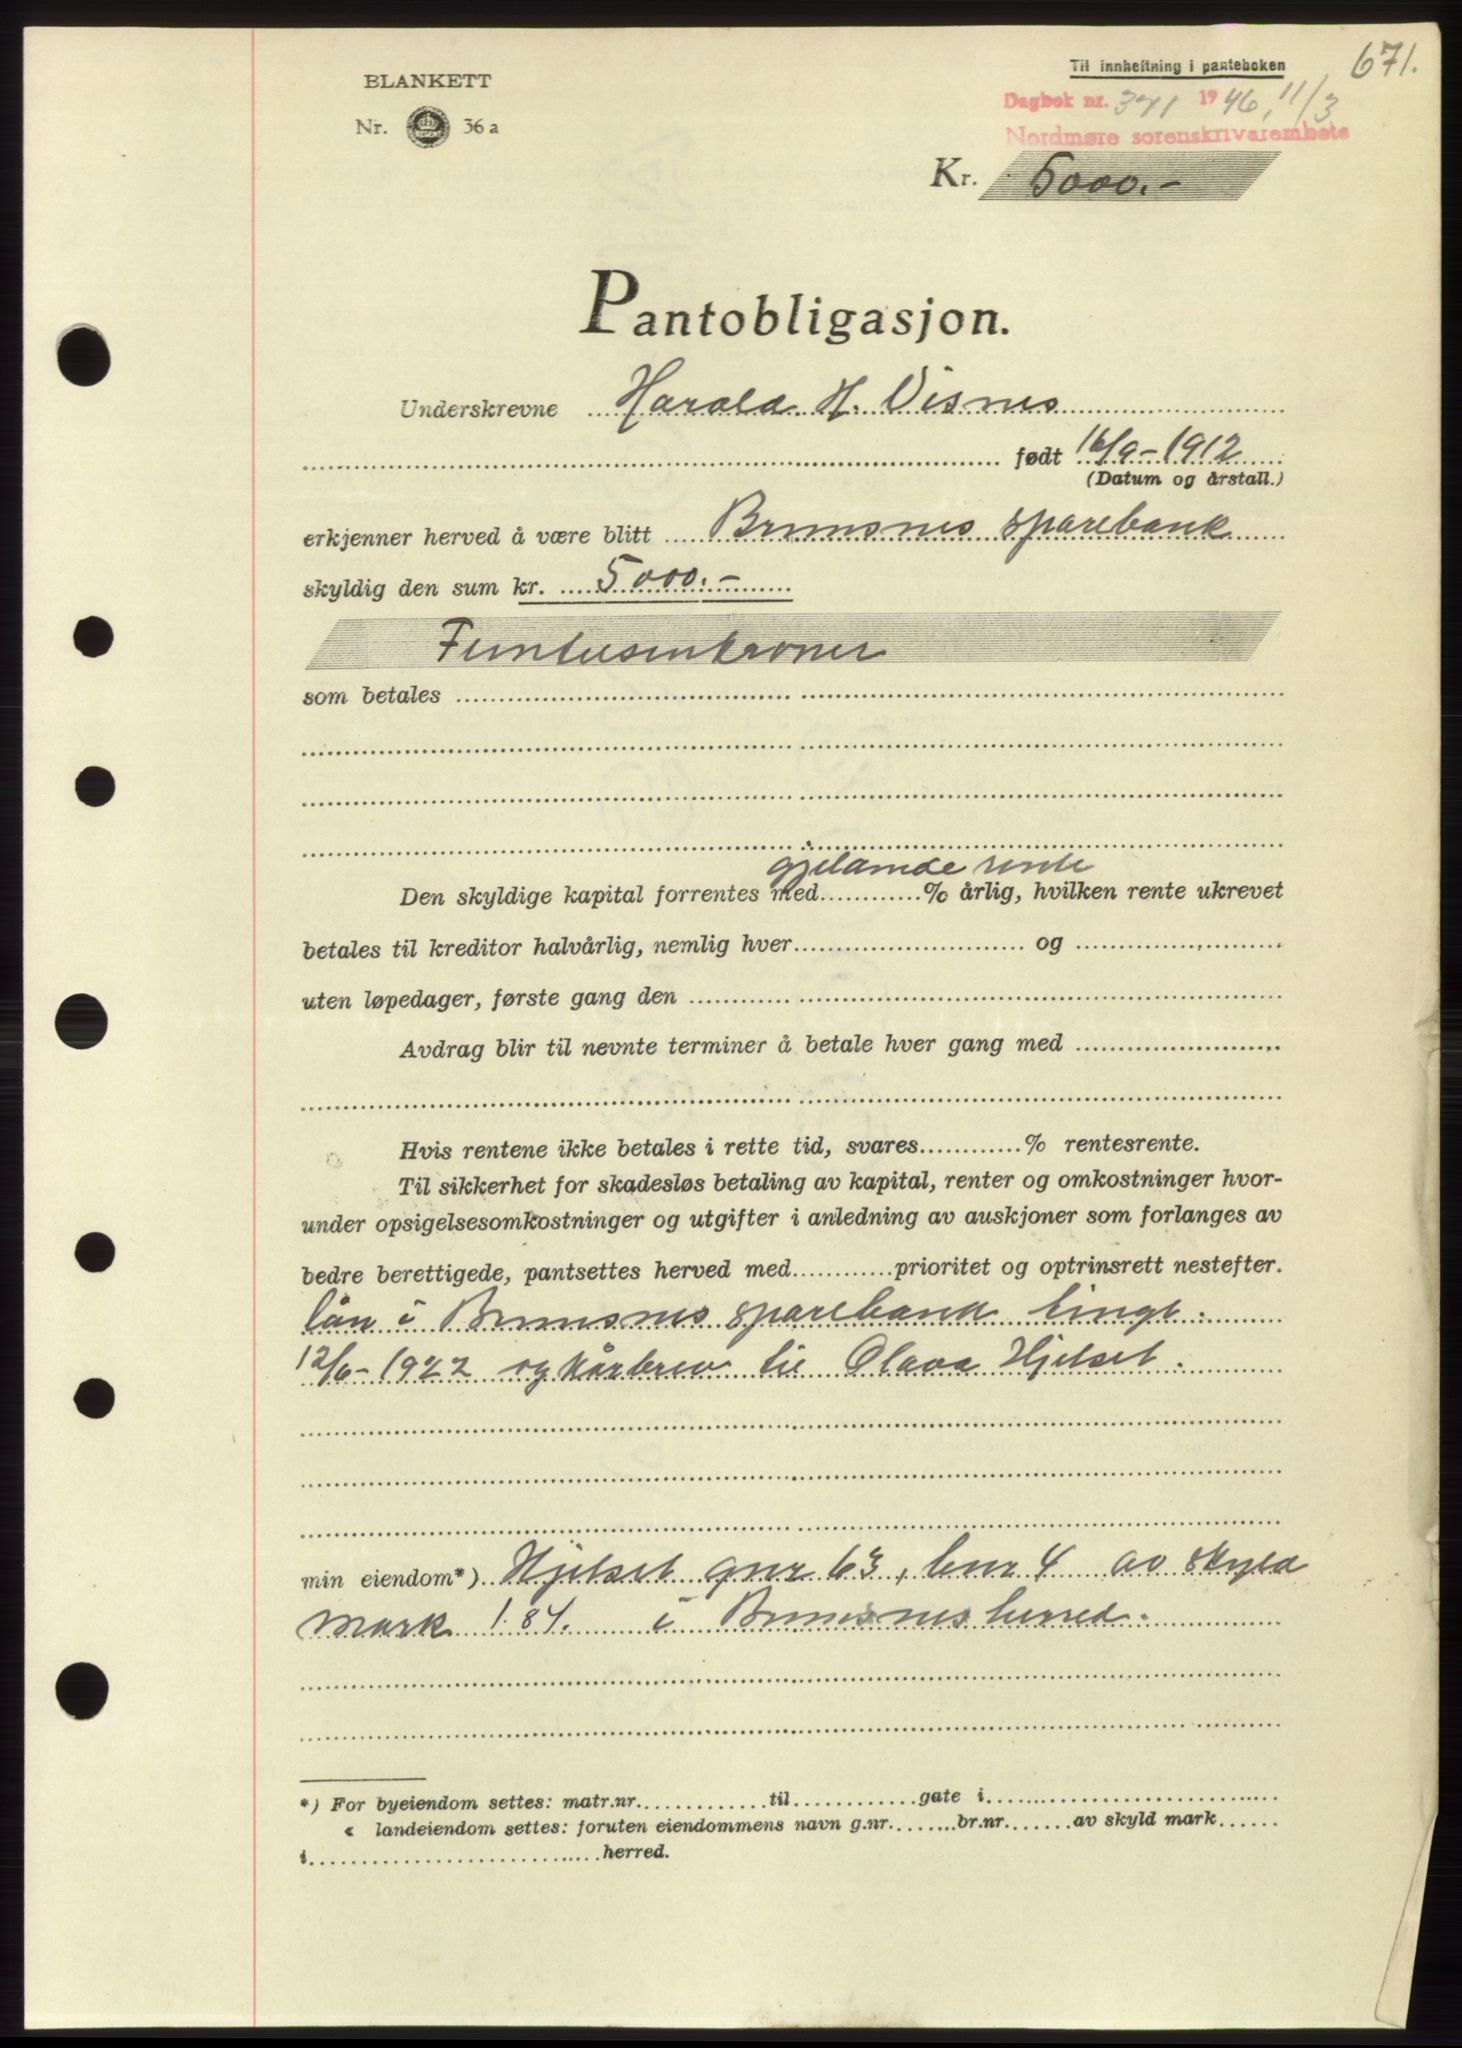 671.
Til innheftning i panteboken
BLANKETT
Nr. 36 a
Dagbok nr. 371 1946, 11/3
Nordmøre sorenskrivarembete
Kr. 5000.-
Pantobligasjon.
Underskrevne Harald H. Visnes
født 16/9-1912
(Datum og årstall.)
erkjenner herved å være blitt Bremsnes sparebank
skyldig den sum kr. 5000.-
Femtusenkroner
som betales
gjeldende rente
Den skyldige kapital forrentes med............% årlig, hvilken rente ukrevet
betales til kreditor halvårlig, nemlig hver............ og ............
uten løpedager, første gang den
Avdrag blir til nevnte terminer å betale hver gang med
Hvis rentene ikke betales i rette tid, svares............% rentesrente.
Til sikkerhet for skadesløs betaling av kapital, renter og omkostninger hvor-
under opsigelsesomkostninger og utgifter i anledning av auskjoner som forlanges av
bedre berettigede, pantsettes herved med............prioritet og optrinsrett nestefter.
lån i Bremsnes sparebank tingl.
12/6-1922 og kårbrev til Olava Hjelset.
min eiendom*) Hjelset gnr 63, bnr 4 av skyld
mark 1.84. i Bremsnes herred.
*) For byeiendom settes: matr.nr.............til............gate i............
« landeiendom settes: foruten eiendommens navn g.nr........br.nr.......av skyld mark......
i............herred.